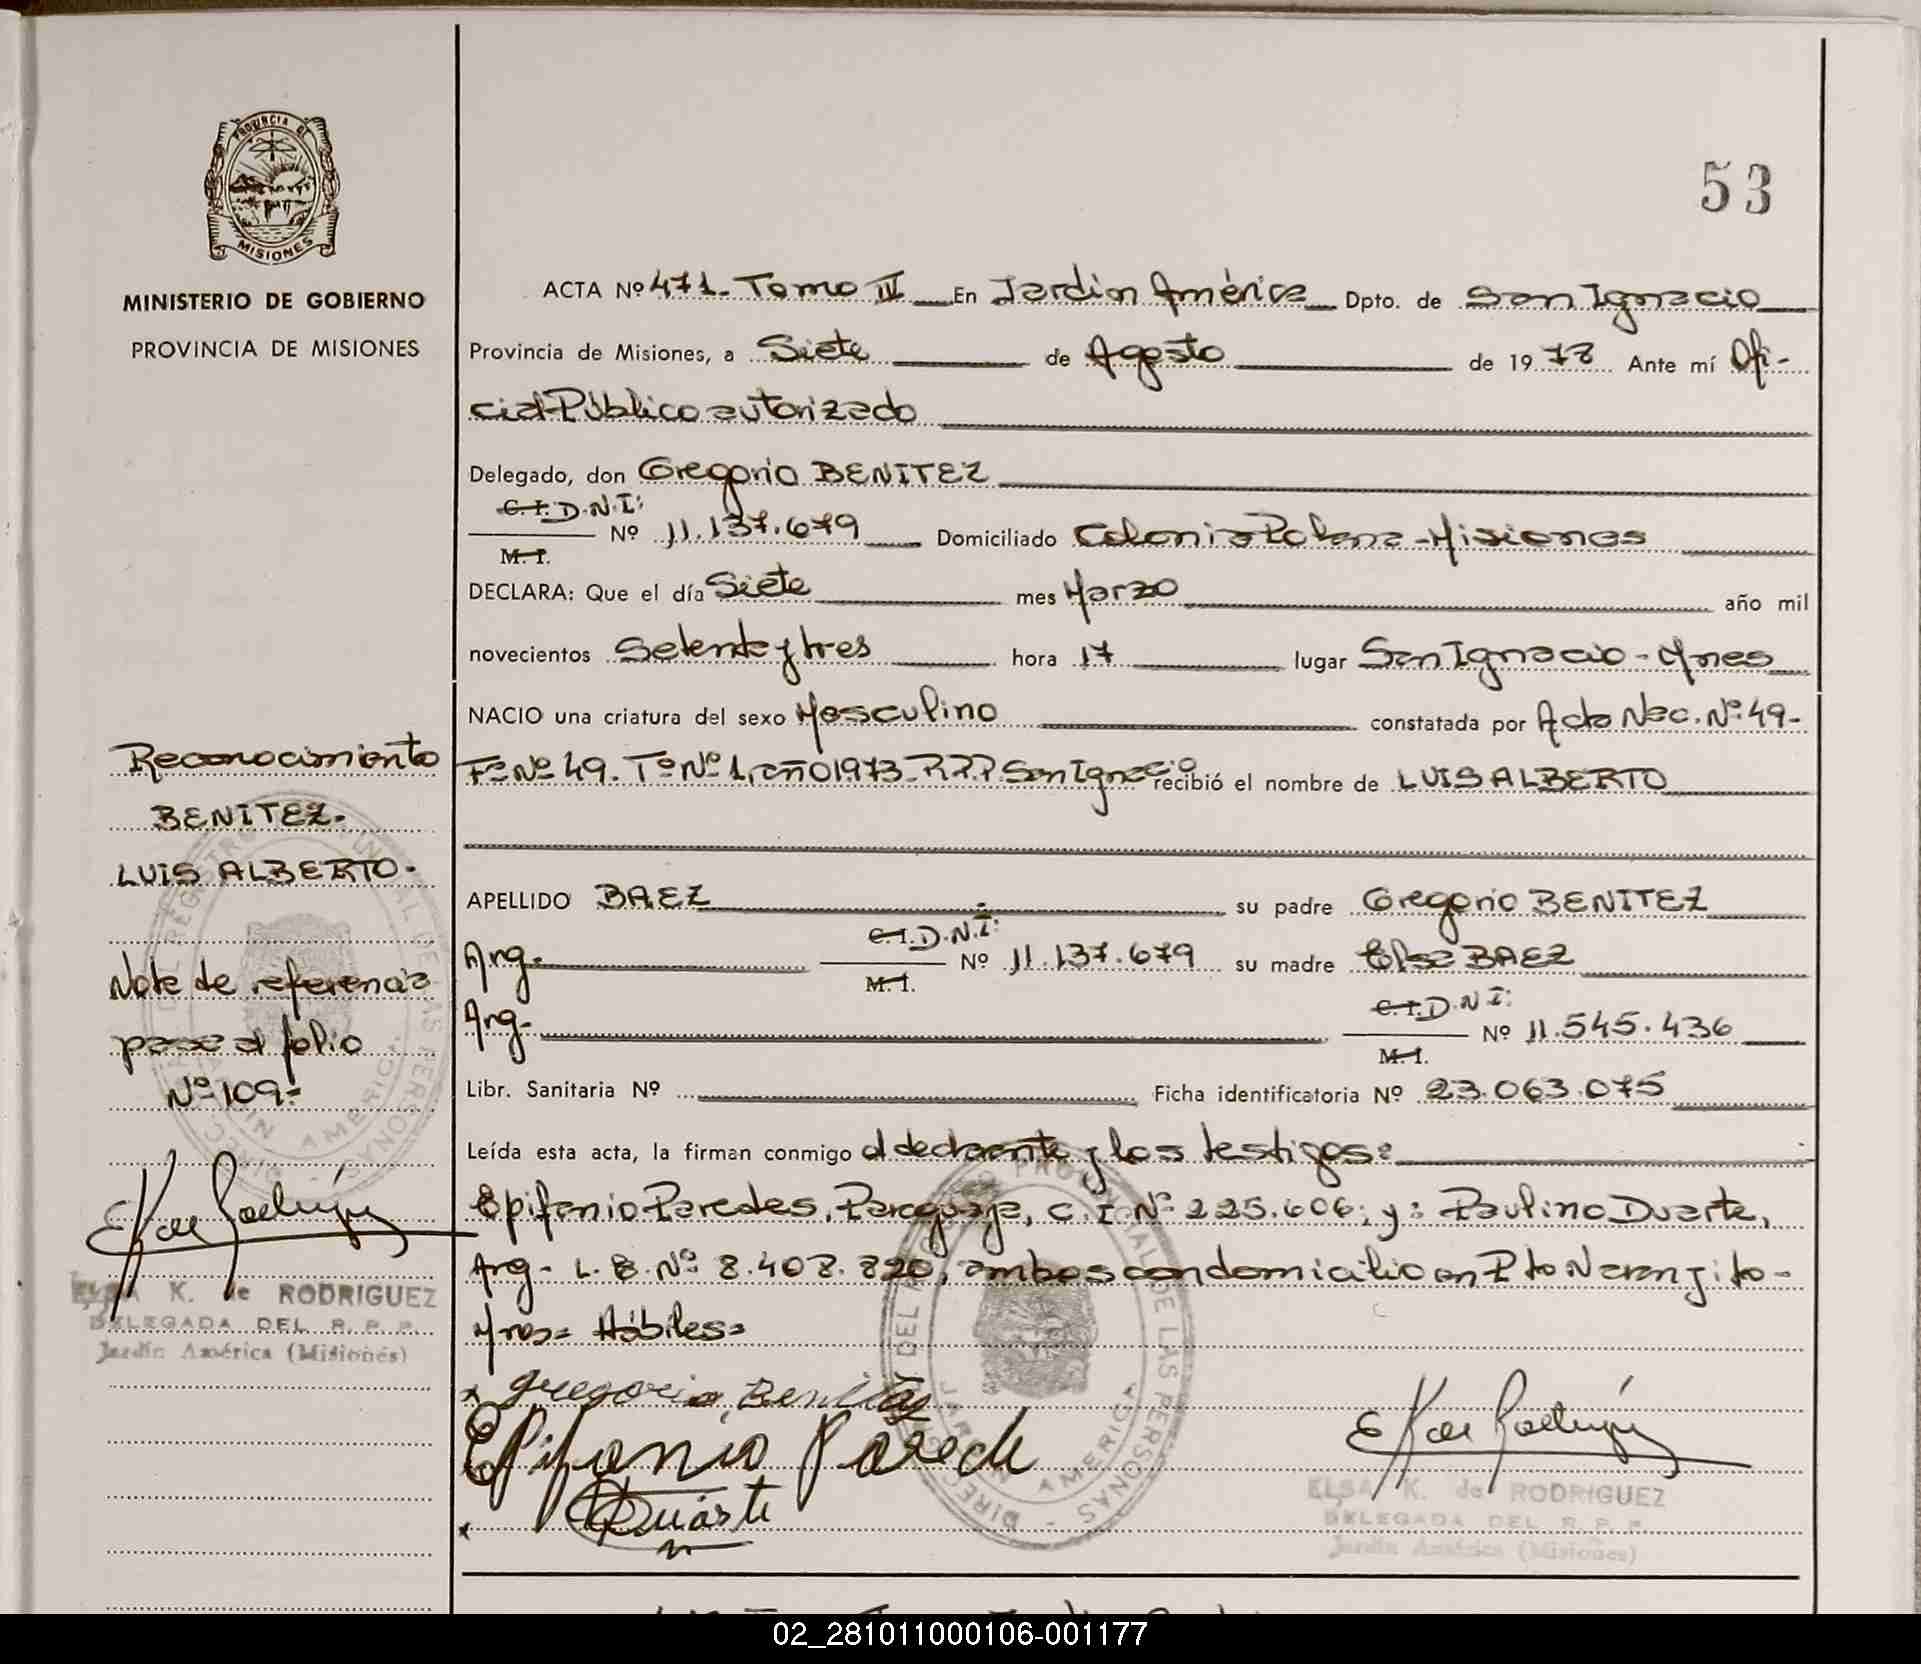 PROVINCIA DE
MISIONES
MINISTERIO DE GOBIERNO
PROVINCIA DE MISIONES
53
ACTA Nº 471.- Tomo II En Jardín América Dpto. de San Ignacio
Provincia de Misiones, a Siete de Agosto de 1978 Ante mí Ofi-
cial Público autorizado
Delegado, don Gregorio BENITEZ
C.I. D.N.I:
Nº 11.137.679 Domiciliado Colonia Polana - Misiones
M.I.
DECLARA: Que el día Siete mes Marzo año mil
novecientos Setenta y tres hora 17 lugar San Ignacio - Mnes
NACIO una criatura del sexo Masculino constatada por Acta Nac. Nº 49-
Fº Nº 49. Tº Nº 1, año 1973 - R.P.P. San Ignacio recibió el nombre de LUIS ALBERTO
APELLIDO BAEZ su padre Gregorio BENITEZ
C.I. D.N.I:
Arg. Nº 11.137.679 su madre Elsa BAEZ
M.I.
C.I. D.N.I:
Arg. Nº 11.545.436
M.I.
Libr. Sanitaria Nº Ficha identificatoria Nº 23.063.075
Leída esta acta, la firman conmigo el declarante y los testigos:
Epifanio Paredes, Paraguaya, C.I Nº 225.606; y: Paulino Duarte,
Arg - L.E. Nº 8.408.820, ambos con domicilio en Pto Naranjito -
Mnes= Hábiles=
Gregorio Benitez
Epifanio Parede
Duarte
E K de Rodriguez
ELSA K. de RODRIGUEZ
DELEGADA DEL R. P. P.
Jardín América (Misiones)
Reconocimiento
BENITEZ.
LUIS ALBERTO.
Nota de referencia
pasa al folio
Nº 109.-
E K de Rodriguez
ELSA K. de RODRIGUEZ
DELEGADA DEL R. P. P.
Jardín América (Misiones)
02_281011000106-001177